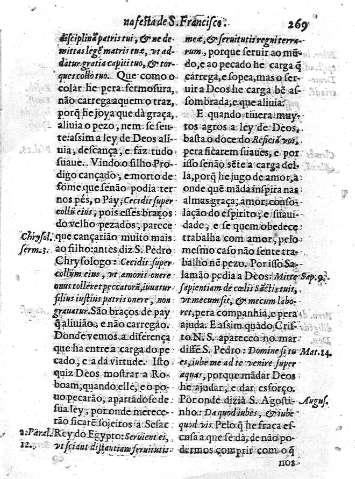 na festa de S. Francisco. 269
disciplinã patris tui, & ne de-
mittas legẽ matris tuæ, ut ad-
datur gratia capiti tuo, & tor-
ques collo tuo. Que como o
colar he pera fermosura,
não carrega a quem o traz,
porq̃ he joya que dà graça,
alivia o pezo, nem se sen-
te: assim a ley de Deos al-
livia, descança, e faz tudo
suave.. Vindo o filho Pro-
digo cançado, e morto de
fome que senão podia ter
nos pès, o Pay; Cecidit super
collũ eius, pois esses braços
do velho pezados, parece
Chrysol. que cançarião muito mais
serm. 3. ao filho: antes diz S. Pedro
Chrysologo: Cecidit super
collum eius, ut amoris onere
onus tolleret peccatorũ, iuvatur
filius iustius patris onere, non
gravatur. São braços de pay
q̃ alivião, e não carregão.
Donde vemos a diferença
que ha entre a carga do pe-
cado, e a da virtude. Isto
quiz Deos mostrar a Ro-
boam, quando elle, e o po-
vo pecarão, apartãdose de
sua ley, por onde merece-
rão ficarẽ sojeitos a Sesac
2. Paral. Rey do Egypto: Servient ei,
12. ut sciant distantiam servitutis
meæ, & servitutis regni terra-
rum, porque servir ao mũ-
do, e ao pecado he carga q̃
carrega, e sopea, mas o ser-
vir a Deos he carga bẽ as-
sombrada, e que alivia.
E quando tivera muy-
tos agros a ley de Deos,
basta o doce do Reficiã vos,
pera ficarem suaves, e por
isso senão sẽte a carga del-
la, porq̃ he jugo de amor, a
onde quẽ mãda inspira nas
almas graça, amor, conso-
lação do espirito, e suavi-
dade, e se quem obedece
trabalha com amor, pelo
mesmo caso não sente tra-
balho nẽ pezo. Por isso Sa-
lamão pedia a Deos: Mitte Sap. 9.
sapientiam de cœlis sãctis tuis,
ut mecum sit, & mecum labo-
ret, pera companhia, e pera
ajuda. E assim quãdo Cris-
to N. S. apareceo no mar
disse S. Pedro: Domine si tu Mat. 14.
es, iube me ad te venire super
aquas, porque mãdar Deos
he ajudar, e dar esforço.
Por onde dizia S. Agosti-
nho: Da quod iubes, & iube Augus.
quod vis. Pelo q̃ he fraca es-
cusa a que se dá, de não po-
dermos comprir com o q̃
nos